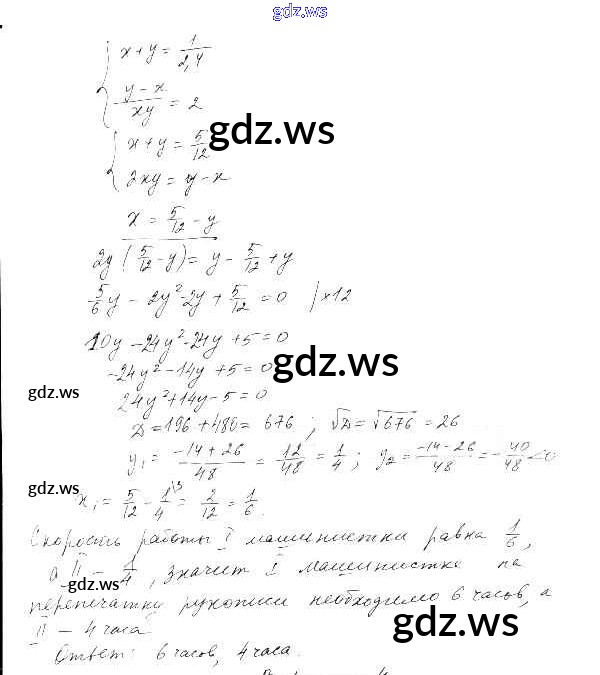 gdz.ws
x + y = 1/2,4
y - x / xy = 2
x + y = 5/12
gdz.ws
2xy = y - x
x = 5/12 - y
2y (5/12 - y) = y - 5/12 + y
5/6 y - 2y² - 2y + 5/12 = 0 | x12
10y - 24y² - 24y + 5 = 0
-24y² - 14y + 5 = 0
gdz.ws
gdz.ws
24y² + 14y - 5 = 0
D = 196 + 480 = 676 ; √D = √676 = 26
y₁ = -14 + 26 / 48 = 12/48 = 1/4 ; y₂ = -14 - 26 / 48 = - 40/48 < 0
gdz.ws
x₁ = 5/12 - 1/4 \3 = 2/12 = 1/6.
Скорость работы I машинистки равна 1/6,
а II - 1/4, значит I машинистке на
gdz.ws
перепечатку рукописи необходимо 6 часов, а
II - 4 часа
gdz.ws
Ответ: 6 часов, 4 часа.